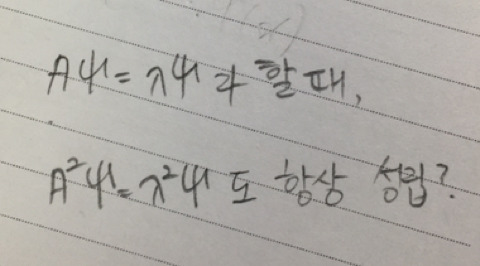 Aψ = λψ 라 할 때,
A²ψ = λ²ψ 도 항상 성립?